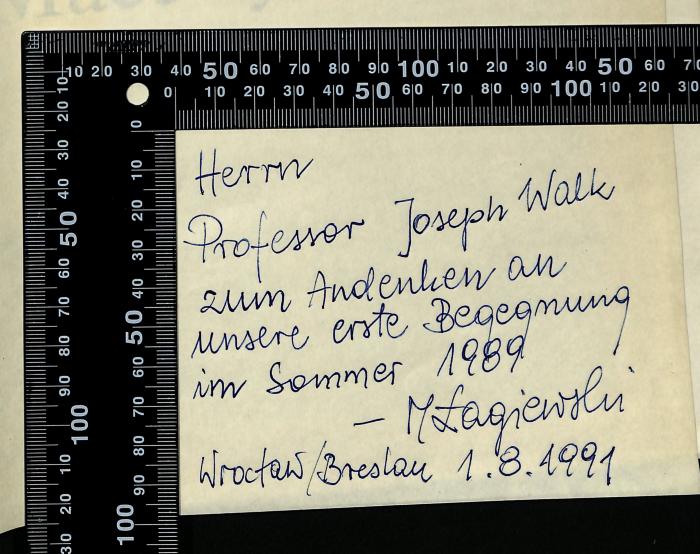 Herrn
Professor Joseph Walk
zum Andenken an
unsere erste Begegnung
im Sommer 1989
— MŁagiewski
Wrocław/Breslau 1.8.1991